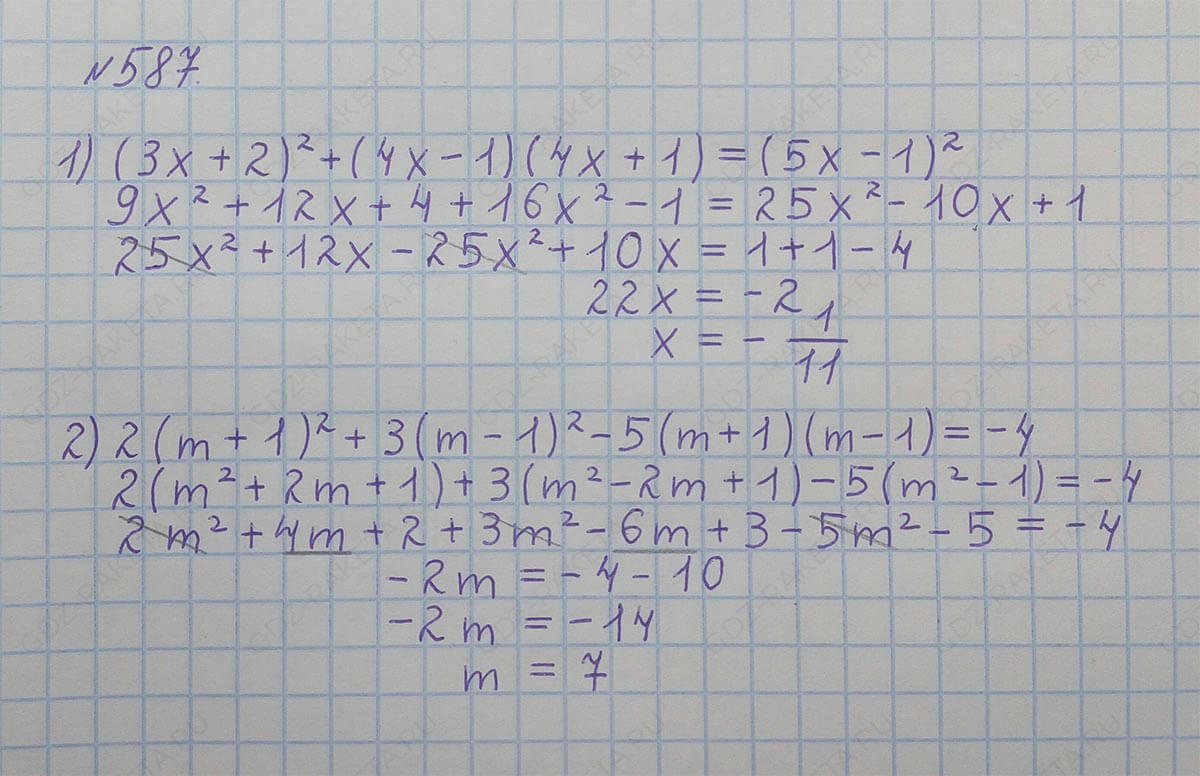 №587.
1) (3x + 2)² + (4x - 1)(4x + 1) = (5x - 1)²
9x² + 12x + 4 + 16x² - 1 = 25x² - 10x + 1
25x² + 12x - 25x² + 10x = 1 + 1 - 4
22x = -2
x = - 1/11
2) 2(m + 1)² + 3(m - 1)² - 5(m + 1)(m - 1) = -4
2(m² + 2m + 1) + 3(m² - 2m + 1) - 5(m² - 1) = -4
2m² + 4m + 2 + 3m² - 6m + 3 - 5m² - 5 = -4
-2m = -4 - 10
-2m = -14
m = 7